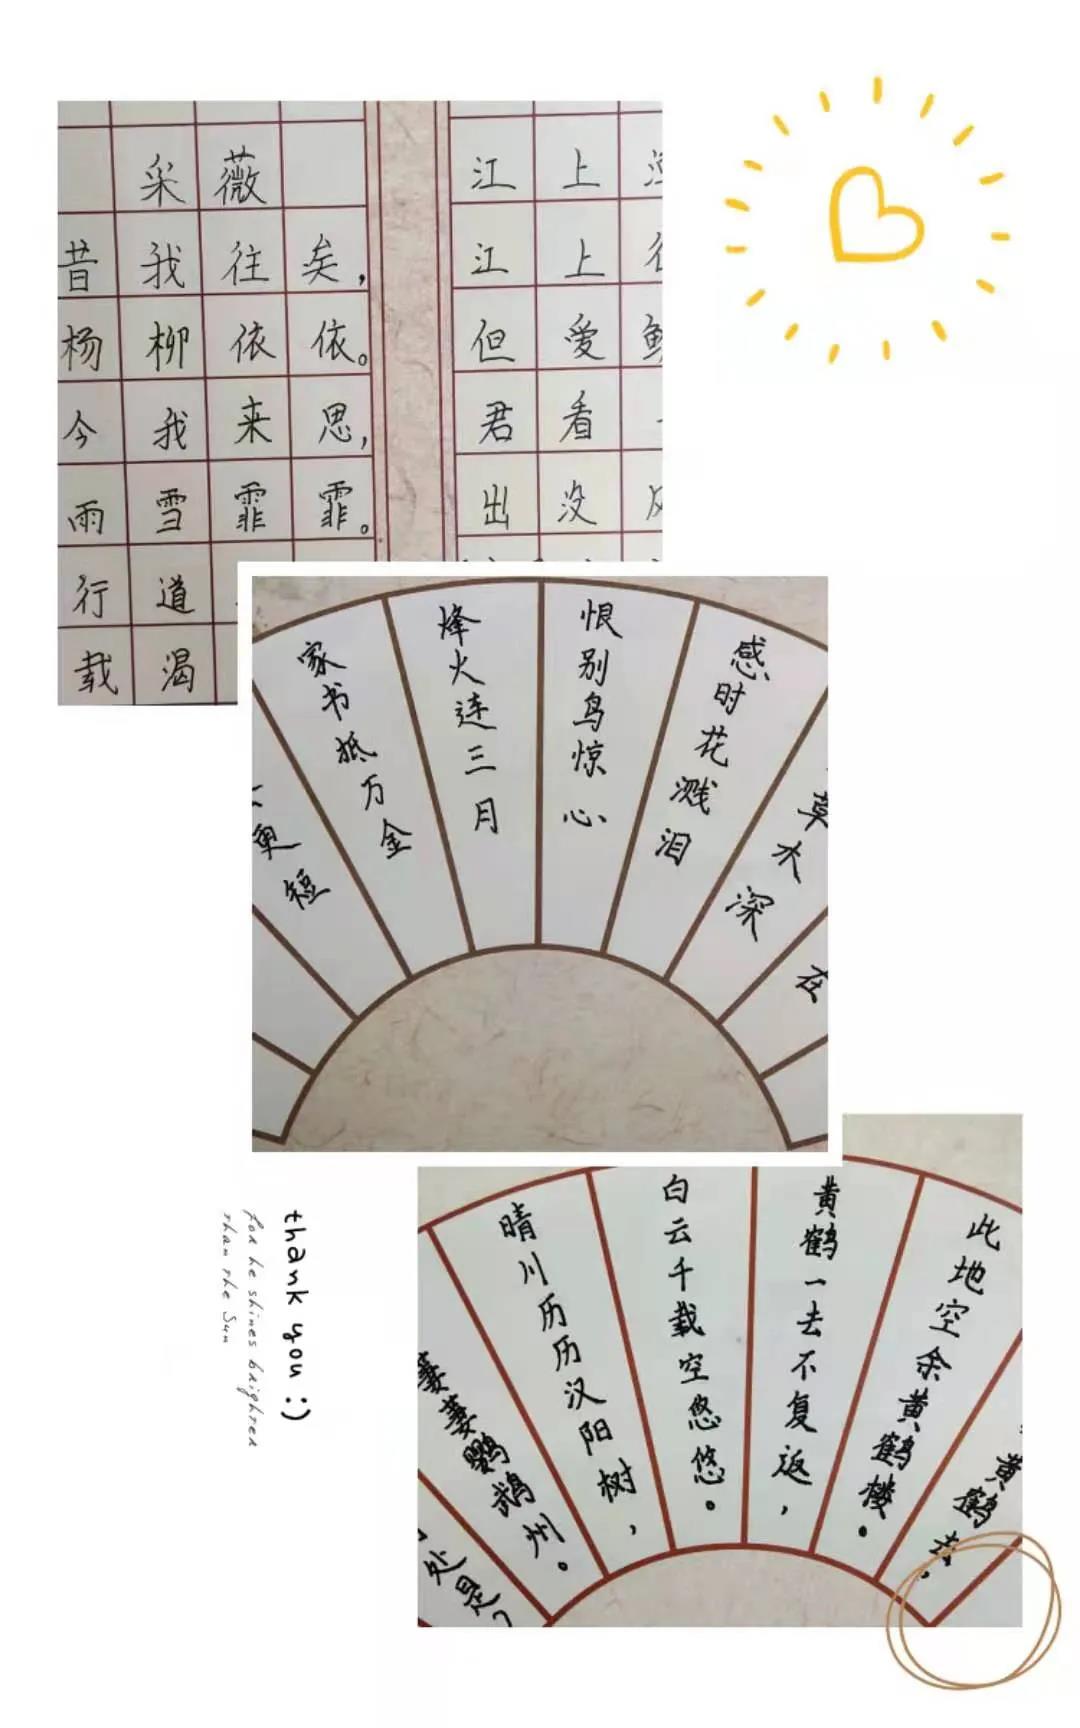 采薇
昔我往矣，
杨柳依依。
今我来思，
雨雪霏霏。
行道
载渴
江上
江上
但爱
君看
出没
在
草木深
感时花溅泪
恨别鸟惊心
烽火连三月
家书抵万金
更短
黄鹤去，
此地空余黄鹤楼。
黄鹤一去不复返，
白云千载空悠悠。
晴川历历汉阳树，
萋萋鹦鹉州。
处是？
thank you :)
for he shines brighter
than the Sun